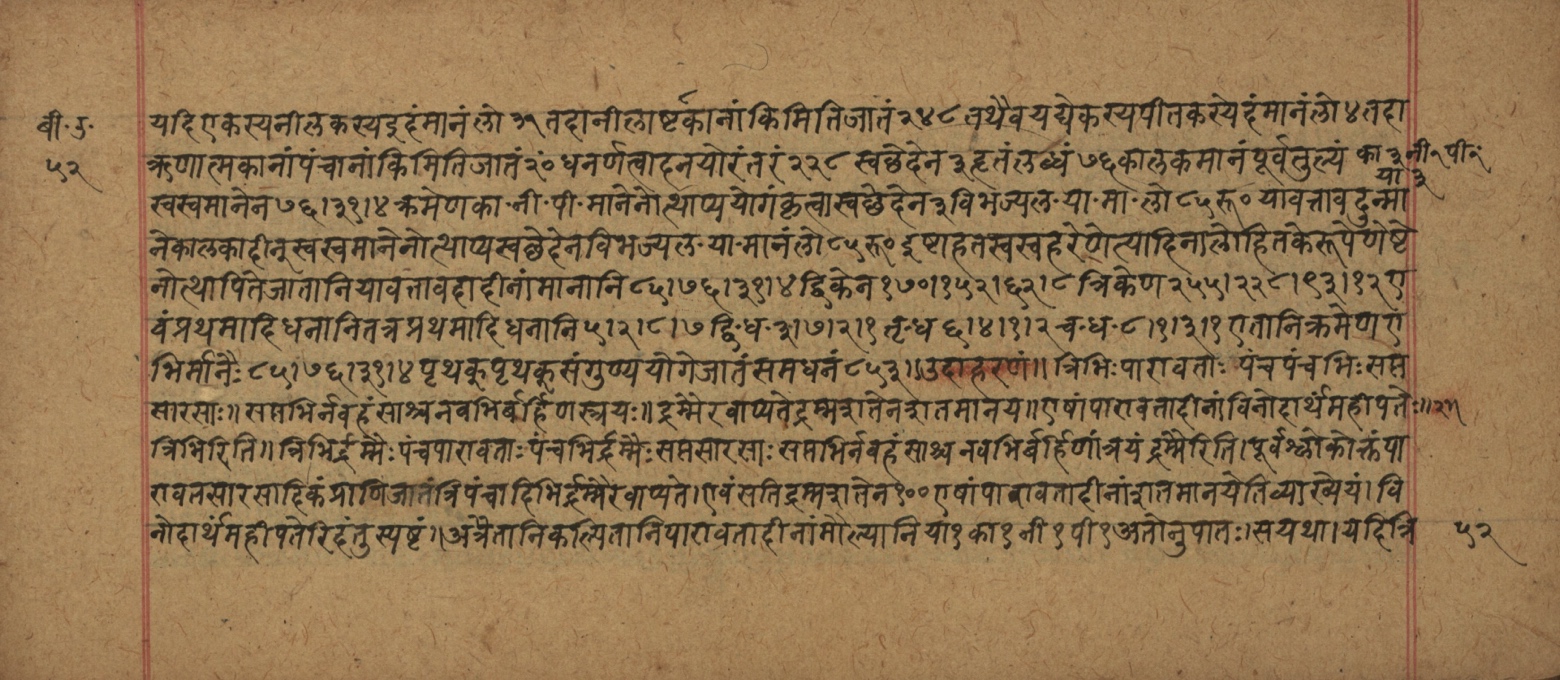 बी. उ. यदि एकस्य नीलकस्य इदं मानं लो ३१ तदा नीलाष्टकानां किमिति जातं २४८ तथैव यद्येकस्य पीतकस्येदं मानं लो ४ तदा
५२ ऋणात्मकानां पंचानां किमिति जातं २०ं धनर्णत्वादनयोरंतरं २२८ स्वछेदेन ३ हृतं लब्धं ७६ कालकमानं पूर्वतुल्यं का ३ नी २ पी २
या ३
स्वस्वमानेन ७६।३१।४ क्रमेण का. नी. पी. मानेनोत्थाप्य योगं कृत्वा स्वछेदेन ३ विभज्य ल. या. मा. लो ८५ रू० यावत्तावदुन्मा
ने कालकादीन् स्वस्वमानेनोत्थाप्य स्वछेदेन विभज्य ल. या. मानं लो ८५ रू० इष्टाहतस्वस्वहरेणेत्यादिना लोहितके रूपेणेष्टे
नोत्थापिते जातानि यावत्तावदादीनां मानानि ८५।७६।३१।४ द्विकेन १७०।१५२।६२।८ त्रिकेण २५५।२२८।९३।१२ ए
वं प्रथमादिधनानि तत्र प्रथमादिधनानि ५।२।८।७ द्वि. ध. ३।७।२।१ तृ. ध ६।४।१।२ च. ध. ८।१।३।१ एतानि क्रमेण ए
भिर्मानैः ८५।७६।३१।४ पृथक् पृथक् संगुण्य योगे जातं समधनं ८५३॥ उदाहरणं॥ त्रिभिः पारावताः पंच पंचभिः सप्त
सारसाः॥ सप्तभिर्नव हंसाश्च नवभिर्बर्हिणस्त्रयः॥ द्रम्मैरवाप्यते द्रम्मशतेन शतमानय॥ एषां पारावतादीनां विनोदार्थं महीपतेः॥२॥
त्रिभिरिति॥ त्रिभिर्द्रम्मैः पंच पारावताः पंचभिर्द्रम्मैः सप्त सारसाः सप्तभिर्नव हंसाश्च नवभिर्बर्हिणां त्रयं द्रम्मैरिति। पूर्वश्लोकोक्तं पा
रावतसारसादिकं प्राणिजातं त्रिपंचादिभिर्द्रम्मैरवाप्यते। एवं सति द्रम्मशतेन १०० एषां पारावतादीनां शतमानयेति व्याख्येयं। वि
नोदार्थं महीपतेरिदं तु स्पष्टं। अत्रैतानि कल्पितानि पारावतादीनां मौल्यानि या १ का १ नी १ पी १ अतोनुपातः। स यथा। यदि त्रि ५२